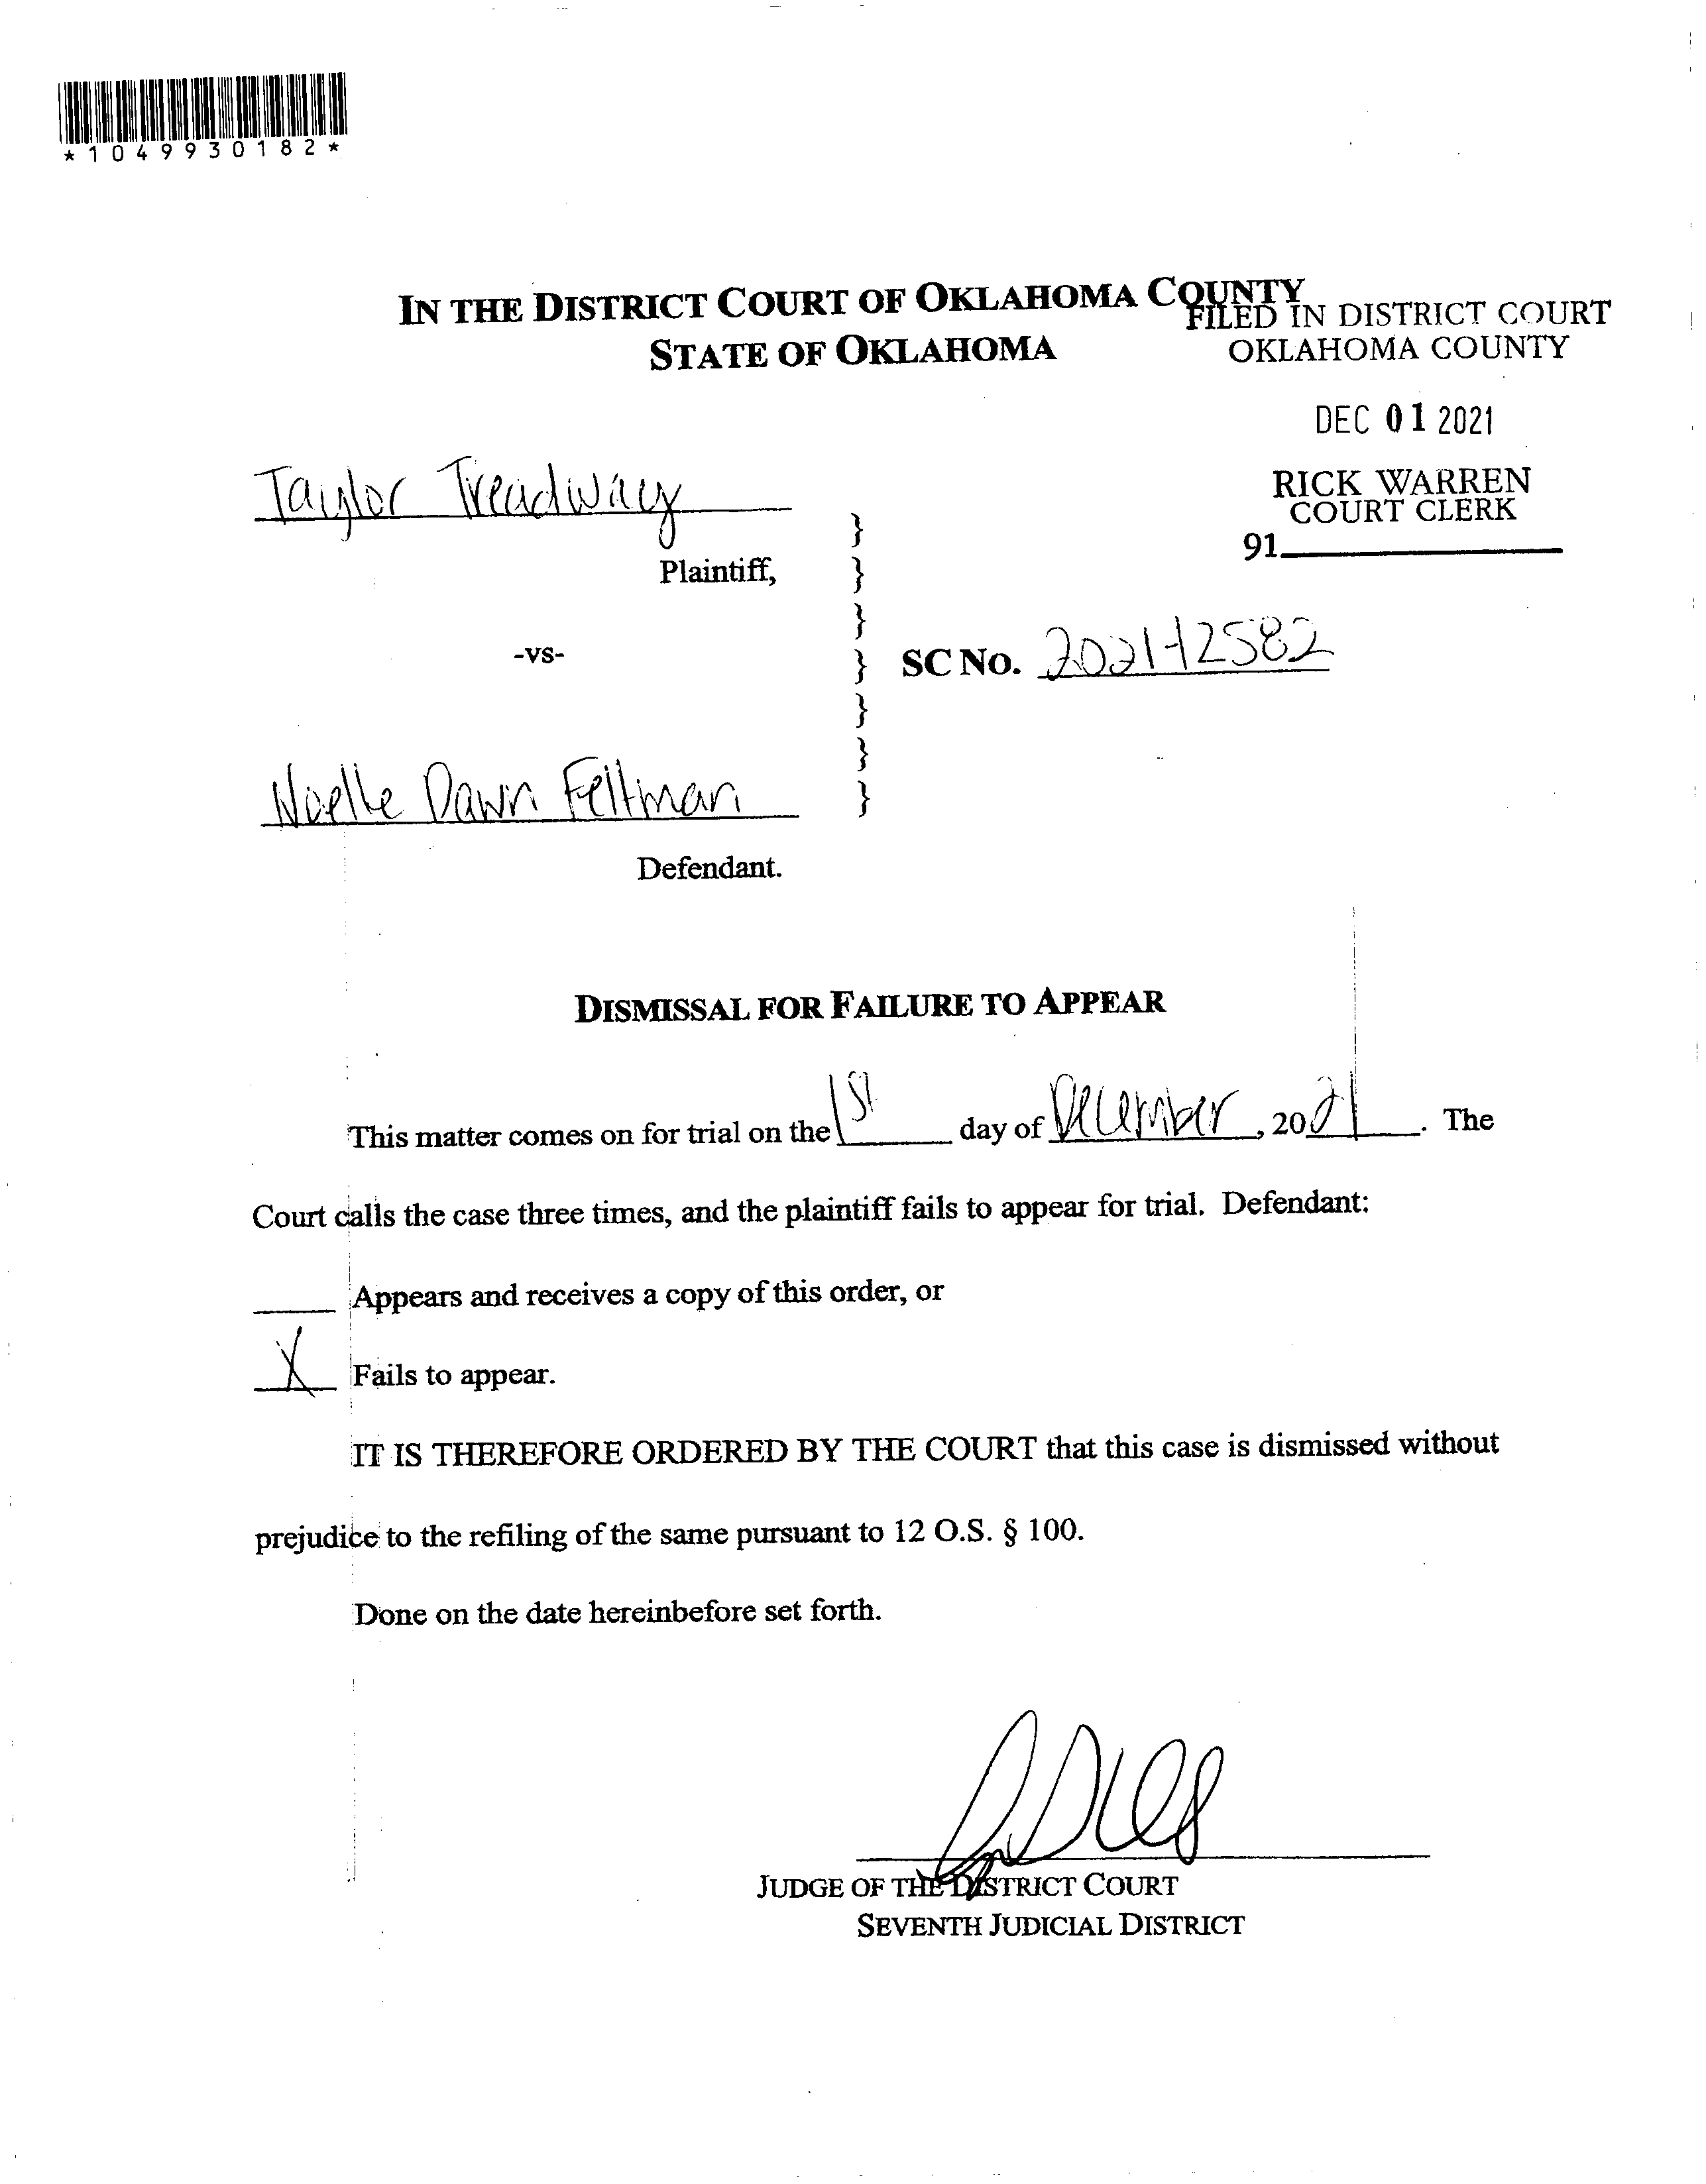 *1049930182*
IN THE DISTRICT COURT OF OKLAHOMA COUNTY
STATE OF OKLAHOMA
FILED IN DISTRICT COURT
OKLAHOMA COUNTY
DEC 01 2021
RICK WARREN
COURT CLERK
91
Taylor Treadway
Plaintiff,
-vs-
SC No. 2021-12582
Noelle Dawn Feltman
Defendant.
DISMISSAL FOR FAILURE TO APPEAR
This matter comes on for trial on the 1st day of December, 2021. The
Court calls the case three times, and the plaintiff fails to appear for trial. Defendant:
Appears and receives a copy of this order, or
X Fails to appear.
IT IS THEREFORE ORDERED BY THE COURT that this case is dismissed without
prejudice to the refiling of the same pursuant to 12 O.S. § 100.
Done on the date hereinbefore set forth.
JUDGE OF THE DISTRICT COURT
SEVENTH JUDICIAL DISTRICT